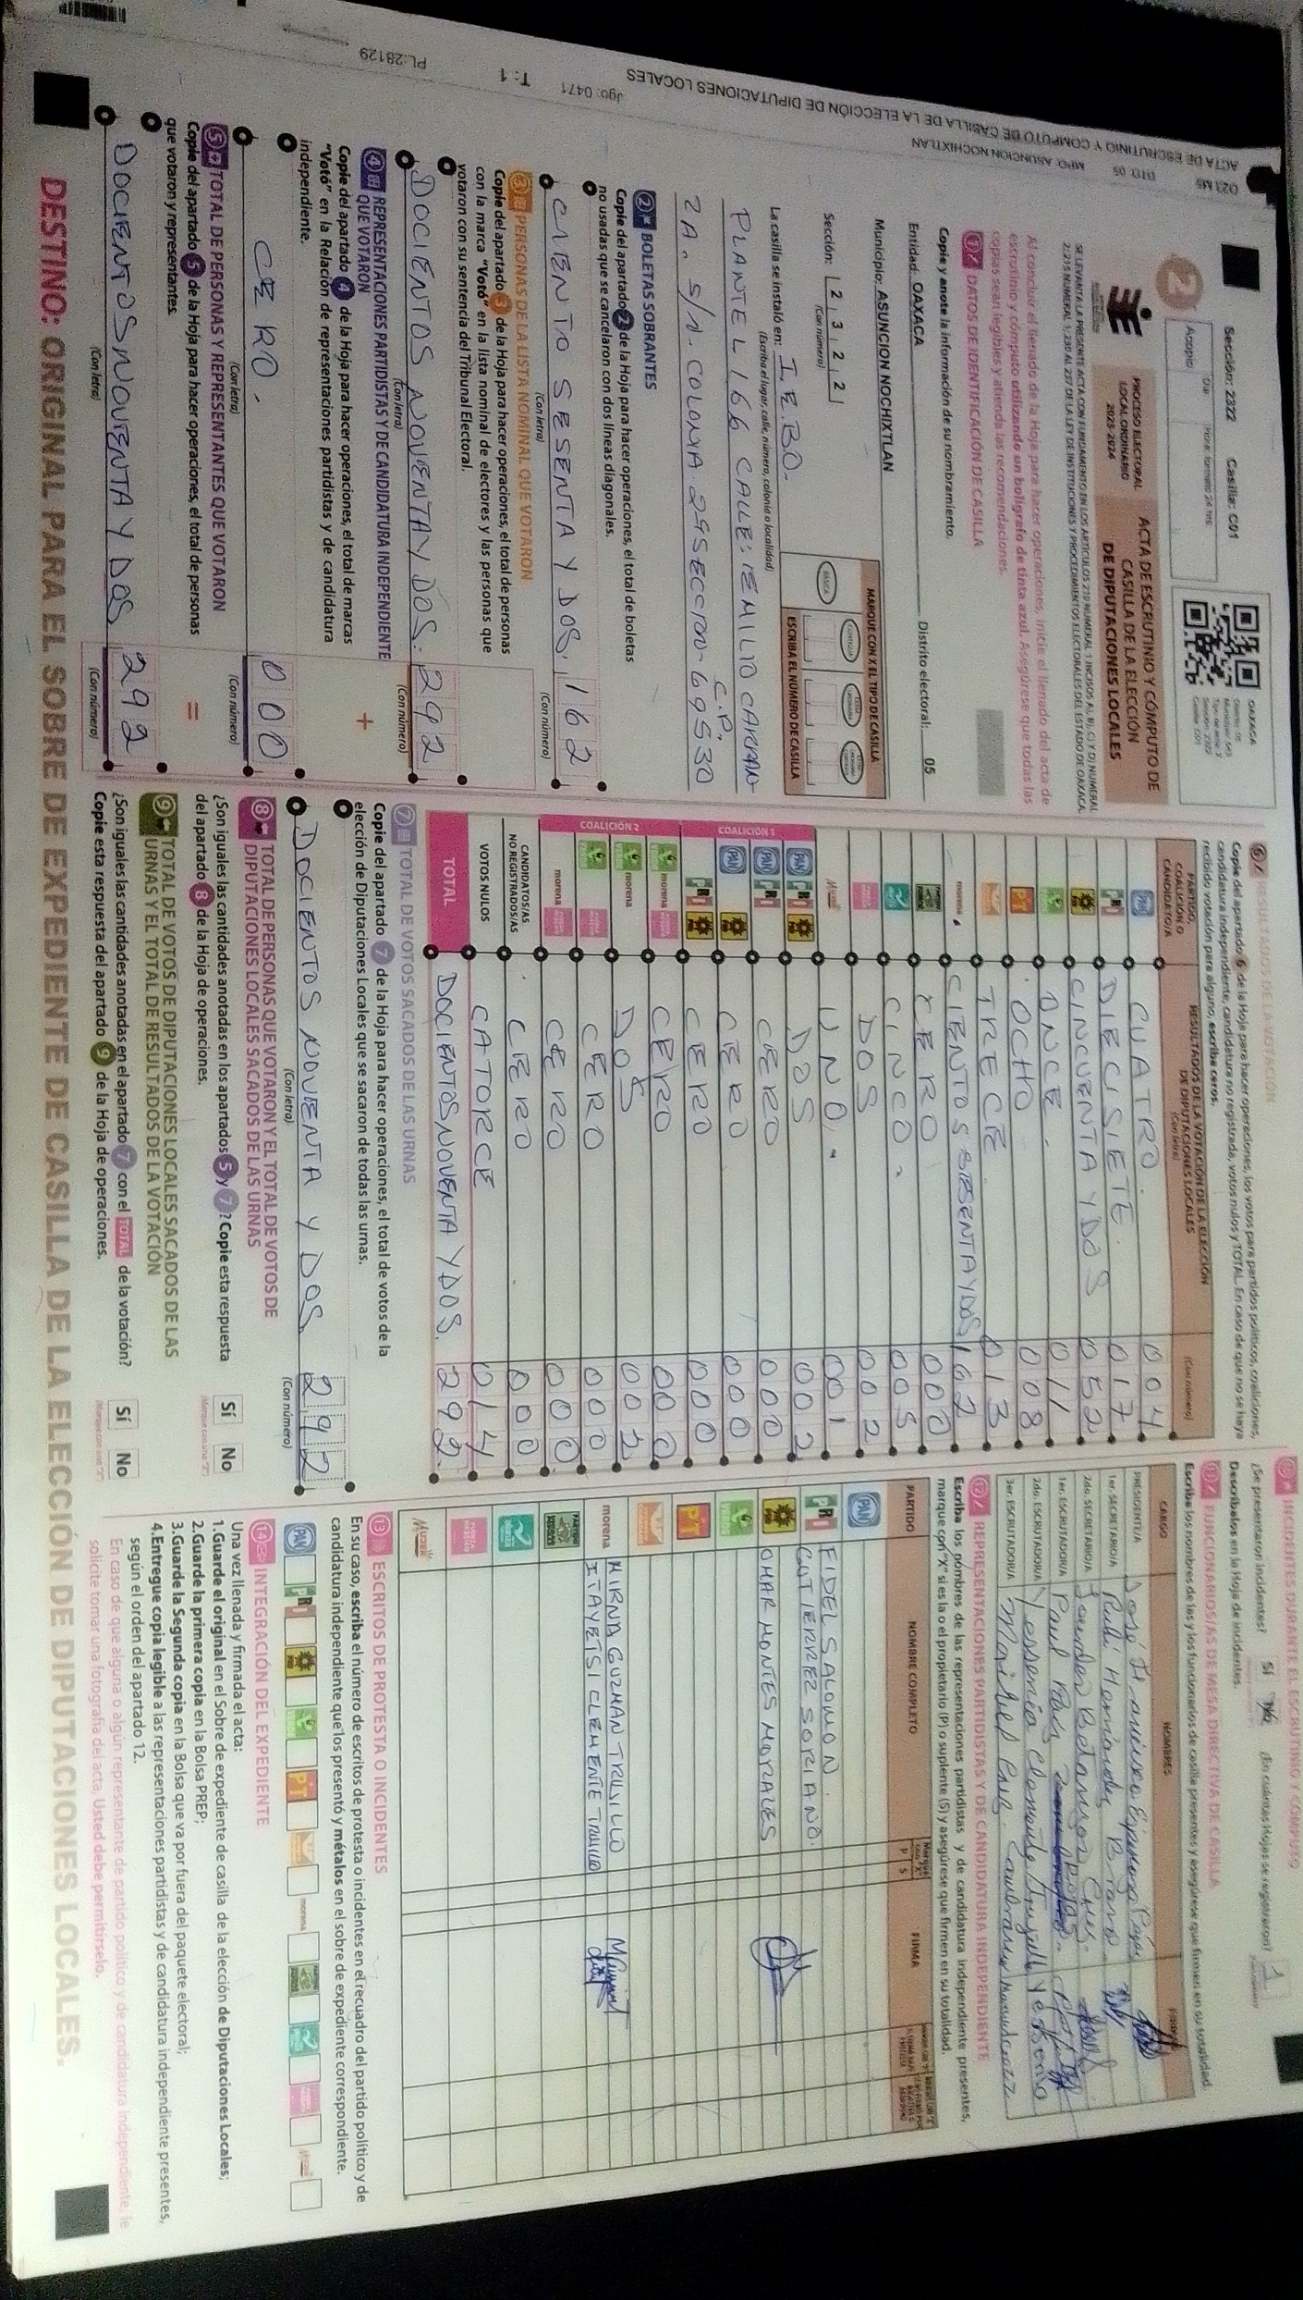 ACTA DE ESCRUTINIO Y CÓMPUTO DE CASILLA DE LA ELECCIÓN DE DIPUTACIONES LOCALES
021 MS DTO: 05 MPIO: ASUNCION NOCHIXTLAN Jgo: 0471 T: 1 PL:28129
Sección: 2322 Casilla: C01
Acopio
Día
Hora: formato 24 hrs
OAXACA
2
PROCESO ELECTORAL
LOCAL ORDINARIO
2023-2024
ACTA DE ESCRUTINIO Y CÓMPUTO DE
CASILLA DE LA ELECCIÓN
DE DIPUTACIONES LOCALES
Al concluir el llenado de la Hoja para hacer operaciones, inicie el llenado del acta de
escrutinio y cómputo utilizando un bolígrafo de tinta azul. Asegúrese que todas las
copias sean legibles y atienda las recomendaciones.
1 DATOS DE IDENTIFICACIÓN DE CASILLA
Copie y anote la información de su nombramiento.
Entidad: OAXACA Distrito electoral: 05
Municipio: ASUNCION NOCHIXTLAN
Sección: 2 3 2 2
(Con número)
MARQUE CON X EL TIPO DE CASILLA
ESCRIBA EL NÚMERO DE CASILLA
La casilla se instaló en: I.E.B.O.
(Escriba el lugar, calle, número, colonia o localidad)
PLANTEL 166 CALLE: EMILIO CARRAN
C.P.
2A. S/N. COLONIA. 2A SECCION- 69530
2 BOLETAS SOBRANTES
Copie del apartado 2 de la Hoja para hacer operaciones, el total de boletas
no usadas que se cancelaron con dos líneas diagonales.
CIENTO SESENTA Y DOS. 162
(Con letra) (Con número)
3 PERSONAS DE LA LISTA NOMINAL QUE VOTARON
Copie del apartado 3 de la Hoja para hacer operaciones, el total de personas
con la marca "Votó" en la lista nominal de electores y las personas que
votaron con su sentencia del Tribunal Electoral.
DOCIENTOS NOVENTA Y DOS. 292
(Con letra) (Con número)
4 REPRESENTACIONES PARTIDISTAS Y DE CANDIDATURA INDEPENDIENTE
QUE VOTARON
+
Copie del apartado 4 de la Hoja para hacer operaciones, el total de marcas
"Votó" en la Relación de representaciones partidistas y de candidatura
independiente.
CERO. 000
(Con letra) (Con número)
5 TOTAL DE PERSONAS Y REPRESENTANTES QUE VOTARON
=
Copie del apartado 5 de la Hoja para hacer operaciones, el total de personas
que votaron y representantes.
DOCIENTOS NOVENTA Y DOS 292
(Con letra) (Con número)
6 RESULTADOS DE LA VOTACIÓN
Copie del apartado 6 de la Hoja para hacer operaciones, los votos para partidos políticos, coaliciones,
candidatura independiente, candidatura no registrada, votos nulos y TOTAL. En caso de que no se haya
recibido votación para alguno, escriba ceros.
PARTIDO,
COALICIÓN O
CANDIDATO/A
RESULTADOS DE LA VOTACIÓN DE LA ELECCIÓN
DE DIPUTACIONES LOCALES
(Con letra) (Con número)
PAN CUATRO. 004
PRI DIECISIETE. 017
PRD CINCUENTA Y DOS 052
ONCE. 011
PT OCHO 008
TRECE 013
morena CIENTO SESENTA Y DOS 162
CERO 000
CINCO. 005
DOS 002
MUJER UNO. 001
COALICIÓN 1
PAN PRI PRD DOS 002
PAN PRI CERO 000
PAN PRD CERO 000
PRI PRD CERO 000
COALICIÓN 2
morena CERO 000
morena DOS 002
CERO 000
morena CERO 000
CANDIDATOS/AS
NO REGISTRADOS/AS CERO 000
VOTOS NULOS CATORCE 014
TOTAL DOCIENTOS NOVENTA Y DOS. 292
7 TOTAL DE VOTOS SACADOS DE LAS URNAS
Copie del apartado 7 de la Hoja para hacer operaciones, el total de votos de la
elección de Diputaciones Locales que se sacaron de todas las urnas.
DOCIENTOS NOVENTA Y DOS 292
(Con letra) (Con número)
8 TOTAL DE PERSONAS QUE VOTARON Y EL TOTAL DE VOTOS DE
DIPUTACIONES LOCALES SACADOS DE LAS URNAS
¿Son iguales las cantidades anotadas en los apartados 5 y 7? Copie esta respuesta
del apartado 8 de la Hoja de operaciones.
Sí No
9 TOTAL DE VOTOS DE DIPUTACIONES LOCALES SACADOS DE LAS
URNAS Y EL TOTAL DE RESULTADOS DE LA VOTACIÓN
¿Son iguales las cantidades anotadas en el apartado 7 con el TOTAL de la votación?
Copie esta respuesta del apartado 9 de la Hoja de operaciones.
Sí No
INCIDENTES DURANTE EL ESCRUTINIO Y CÓMPUTO
¿Se presentaron incidentes? Sí No ¿En cuántas Hojas se registraron? 1
Descríbalos en la Hoja de incidentes.
11 FUNCIONARIOS/AS DE MESA DIRECTIVA DE CASILLA
Escriba los nombres de las y los funcionarios de casilla presentes y asegúrese que firmen en su totalidad.
CARGO NOMBRES FIRMA
PRESIDENTE/A José
1er. SECRETARIO/A Rubí Hernández
2do. SECRETARIO/A Cruz.
1er. ESCRUTADOR/A Paul
2do. ESCRUTADOR/A Yessenia Clemente Trujillo
3er. ESCRUTADOR/A Maribel Cruz
12 REPRESENTACIONES PARTIDISTAS Y DE CANDIDATURA INDEPENDIENTE
Escriba los nombres de las representaciones partidistas y de candidatura independiente presentes,
marque con "X" si es la o el propietario (P) o suplente (S) y asegúrese que firmen en su totalidad.
PARTIDO NOMBRE COMPLETO P S FIRMA
PAN
PRI FIDEL SALOMON.
GUTIERREZ SORIANO.
PRD OMAR MONTES MORALES
PT
morena MIRNA GUZMAN TRUJILLO
ITAYETSI CLEMENTE TRUJILLO
MUJER
13 ESCRITOS DE PROTESTA O INCIDENTES
En su caso, escriba el número de escritos de protesta o incidentes en el recuadro del partido político y de
candidatura independiente que los presentó y métalos en el sobre de expediente correspondiente.
PAN PRI PRD PT morena
14 INTEGRACIÓN DEL EXPEDIENTE
Una vez llenada y firmada el acta:
1.Guarde el original en el Sobre de expediente de casilla de la elección de Diputaciones Locales;
2.Guarde la primera copia en la Bolsa PREP;
3.Guarde la Segunda copia en la Bolsa que va por fuera del paquete electoral;
4.Entregue copia legible a las representaciones partidistas y de candidatura independiente presentes,
según el orden del apartado 12.
En caso de que alguna o algún representante de partido político y de candidatura independiente, le
solicite tomar una fotografía del acta, Usted debe permitírselo.
DESTINO: ORIGINAL PARA EL SOBRE DE EXPEDIENTE DE CASILLA DE LA ELECCIÓN DE DIPUTACIONES LOCALES.